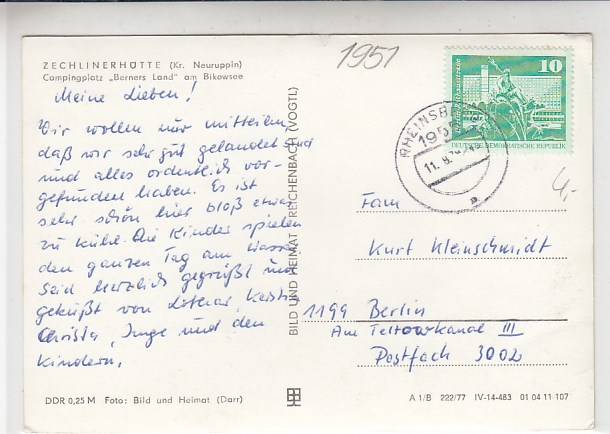 ZECHLINERHÜTTE (Kr. Neuruppin)
Campingplatz „Berners Land" am Bikowsee
Meine Lieben!
Wir wollen nur mitteilen,
daß wir sehr gut gelandet sind
und alles ordentlich vor-
gefunden haben. Es ist
sehr schön hier bloß etwas
zu kühl. Die Kinder spielen
den ganzen Tag am Wasser
Seid herzlich gegrüßt und
geküßt von Lothar,
Christa, Inge und den
Kindern.
DDR 0,25 M Foto: Bild und Heimat (Darr)
BILD UND HEIMAT REICHENBACH (VOGTL)
1951
10
DEUTSCHE DEMOKRATISCHE REPUBLIK
RHEINSB
195
11.8.
4,-
Fam
Kurt Kleinschmidt
1199 Berlin
Am Teltowkanal III
Postfach 3002
A 1/B 222/77 IV-14-483 01 04 11 107